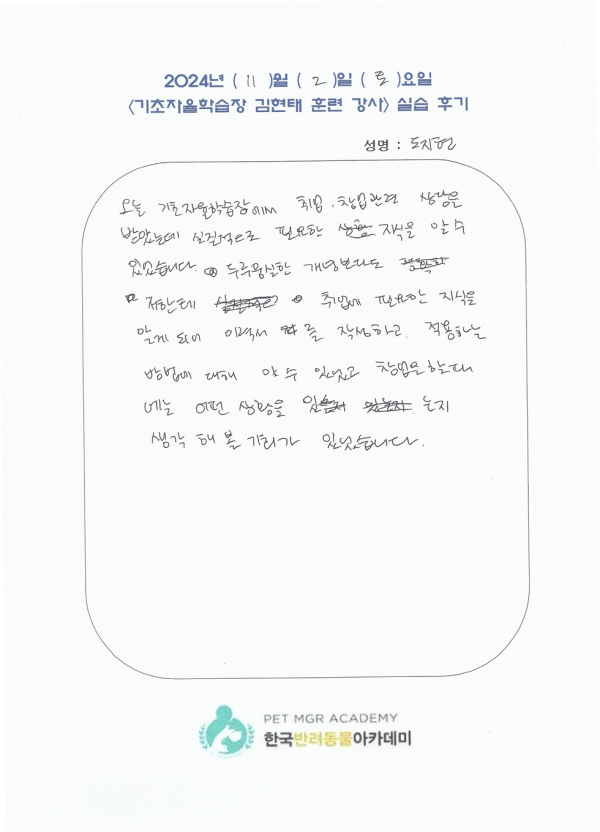 2024년 ( 11 )월 ( 2 )일 ( 토 )요일
<기초자율학습장 김현태 훈련 강사> 실습 후기
성명 : 도지현
오늘 기초자율학습장에서 취업. 창업관련 상담을
받았는데 실질적으로 필요한 지식을 알 수
있었습니다. 두루뭉실한 개념보다도
저한테 취업에 필요한 지식을
알게 되어 이력서 를 작성하고. 적용하는
방법에 대해 알 수 있었고 창업을 할때
에는 어떤 상황을 는지
생각 해 볼 기회가 있었습니다.
PET MGR ACADEMY
한국반려동물아카데미